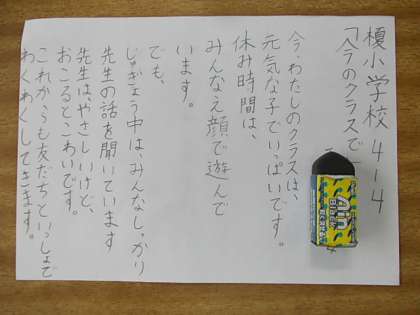 榎小学校 4-4
「今のクラスで」
今、わたしのクラスは、
元気な子でいっぱいです。
休み時間は、
みんなえ顔で遊んで
います。
でも、
じゅぎょう中は、みんなしっかり
先生の話を聞いています
先生は、やさしいけど、
おこると、こわいです。
これからも友だちといっしょで
わくわくしてきます。